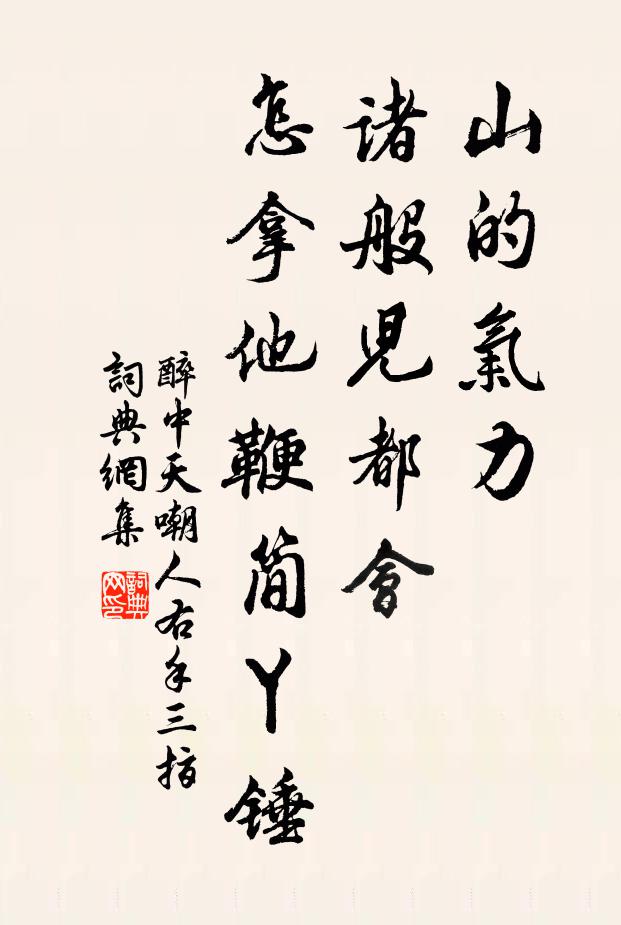 山的氣力
諸般兒都會
怎拿他鞭简丫錘
醉中天嘲人右手三指
詞典網集
詞典
网印